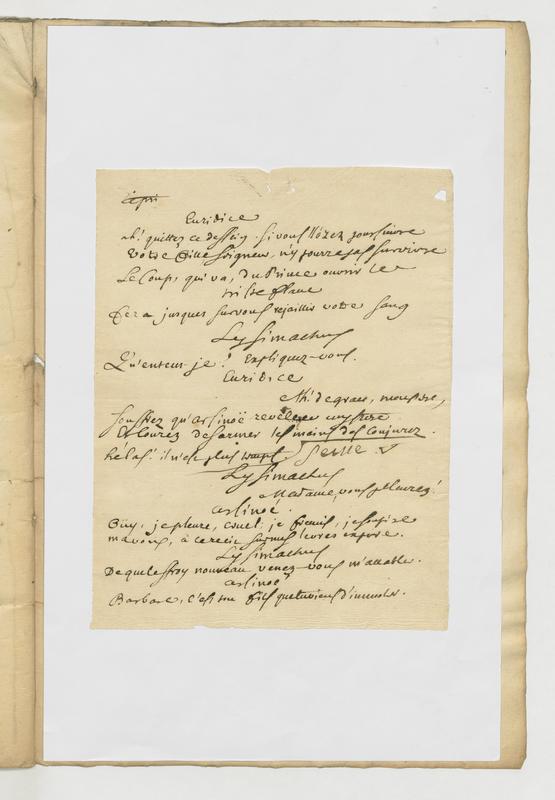 Euridice
ah! quittez ce dessein. si vous l'ôzez poursuivre
votre fille seigneur, n'y pourra pas survivre
Le Coup, qui va, du Prince ouvrir le
triste flanc
fera jusques sur vous rejaillir votre sang
Lysimachus
Qu'entens-je! Expliquez-vous.
Euridice
Ah! de grace, monstre,
souffrez qu'arsinoë revele
et Courez desarmer les mains des Conjurez.
hélas! il n'est plus temps.
Lysimachus
Madame, vous pleurez!
arsinoé.
Ouy, je pleure, cruel; je fremis, je soupire
m'avoüs, à ce recit sur mes levres expire.
Lysimachus
De quel effroy nouveau venez-vous m'accabler.
arsinoé
Barbare, C'est ton fils que tu viens d'immoler.